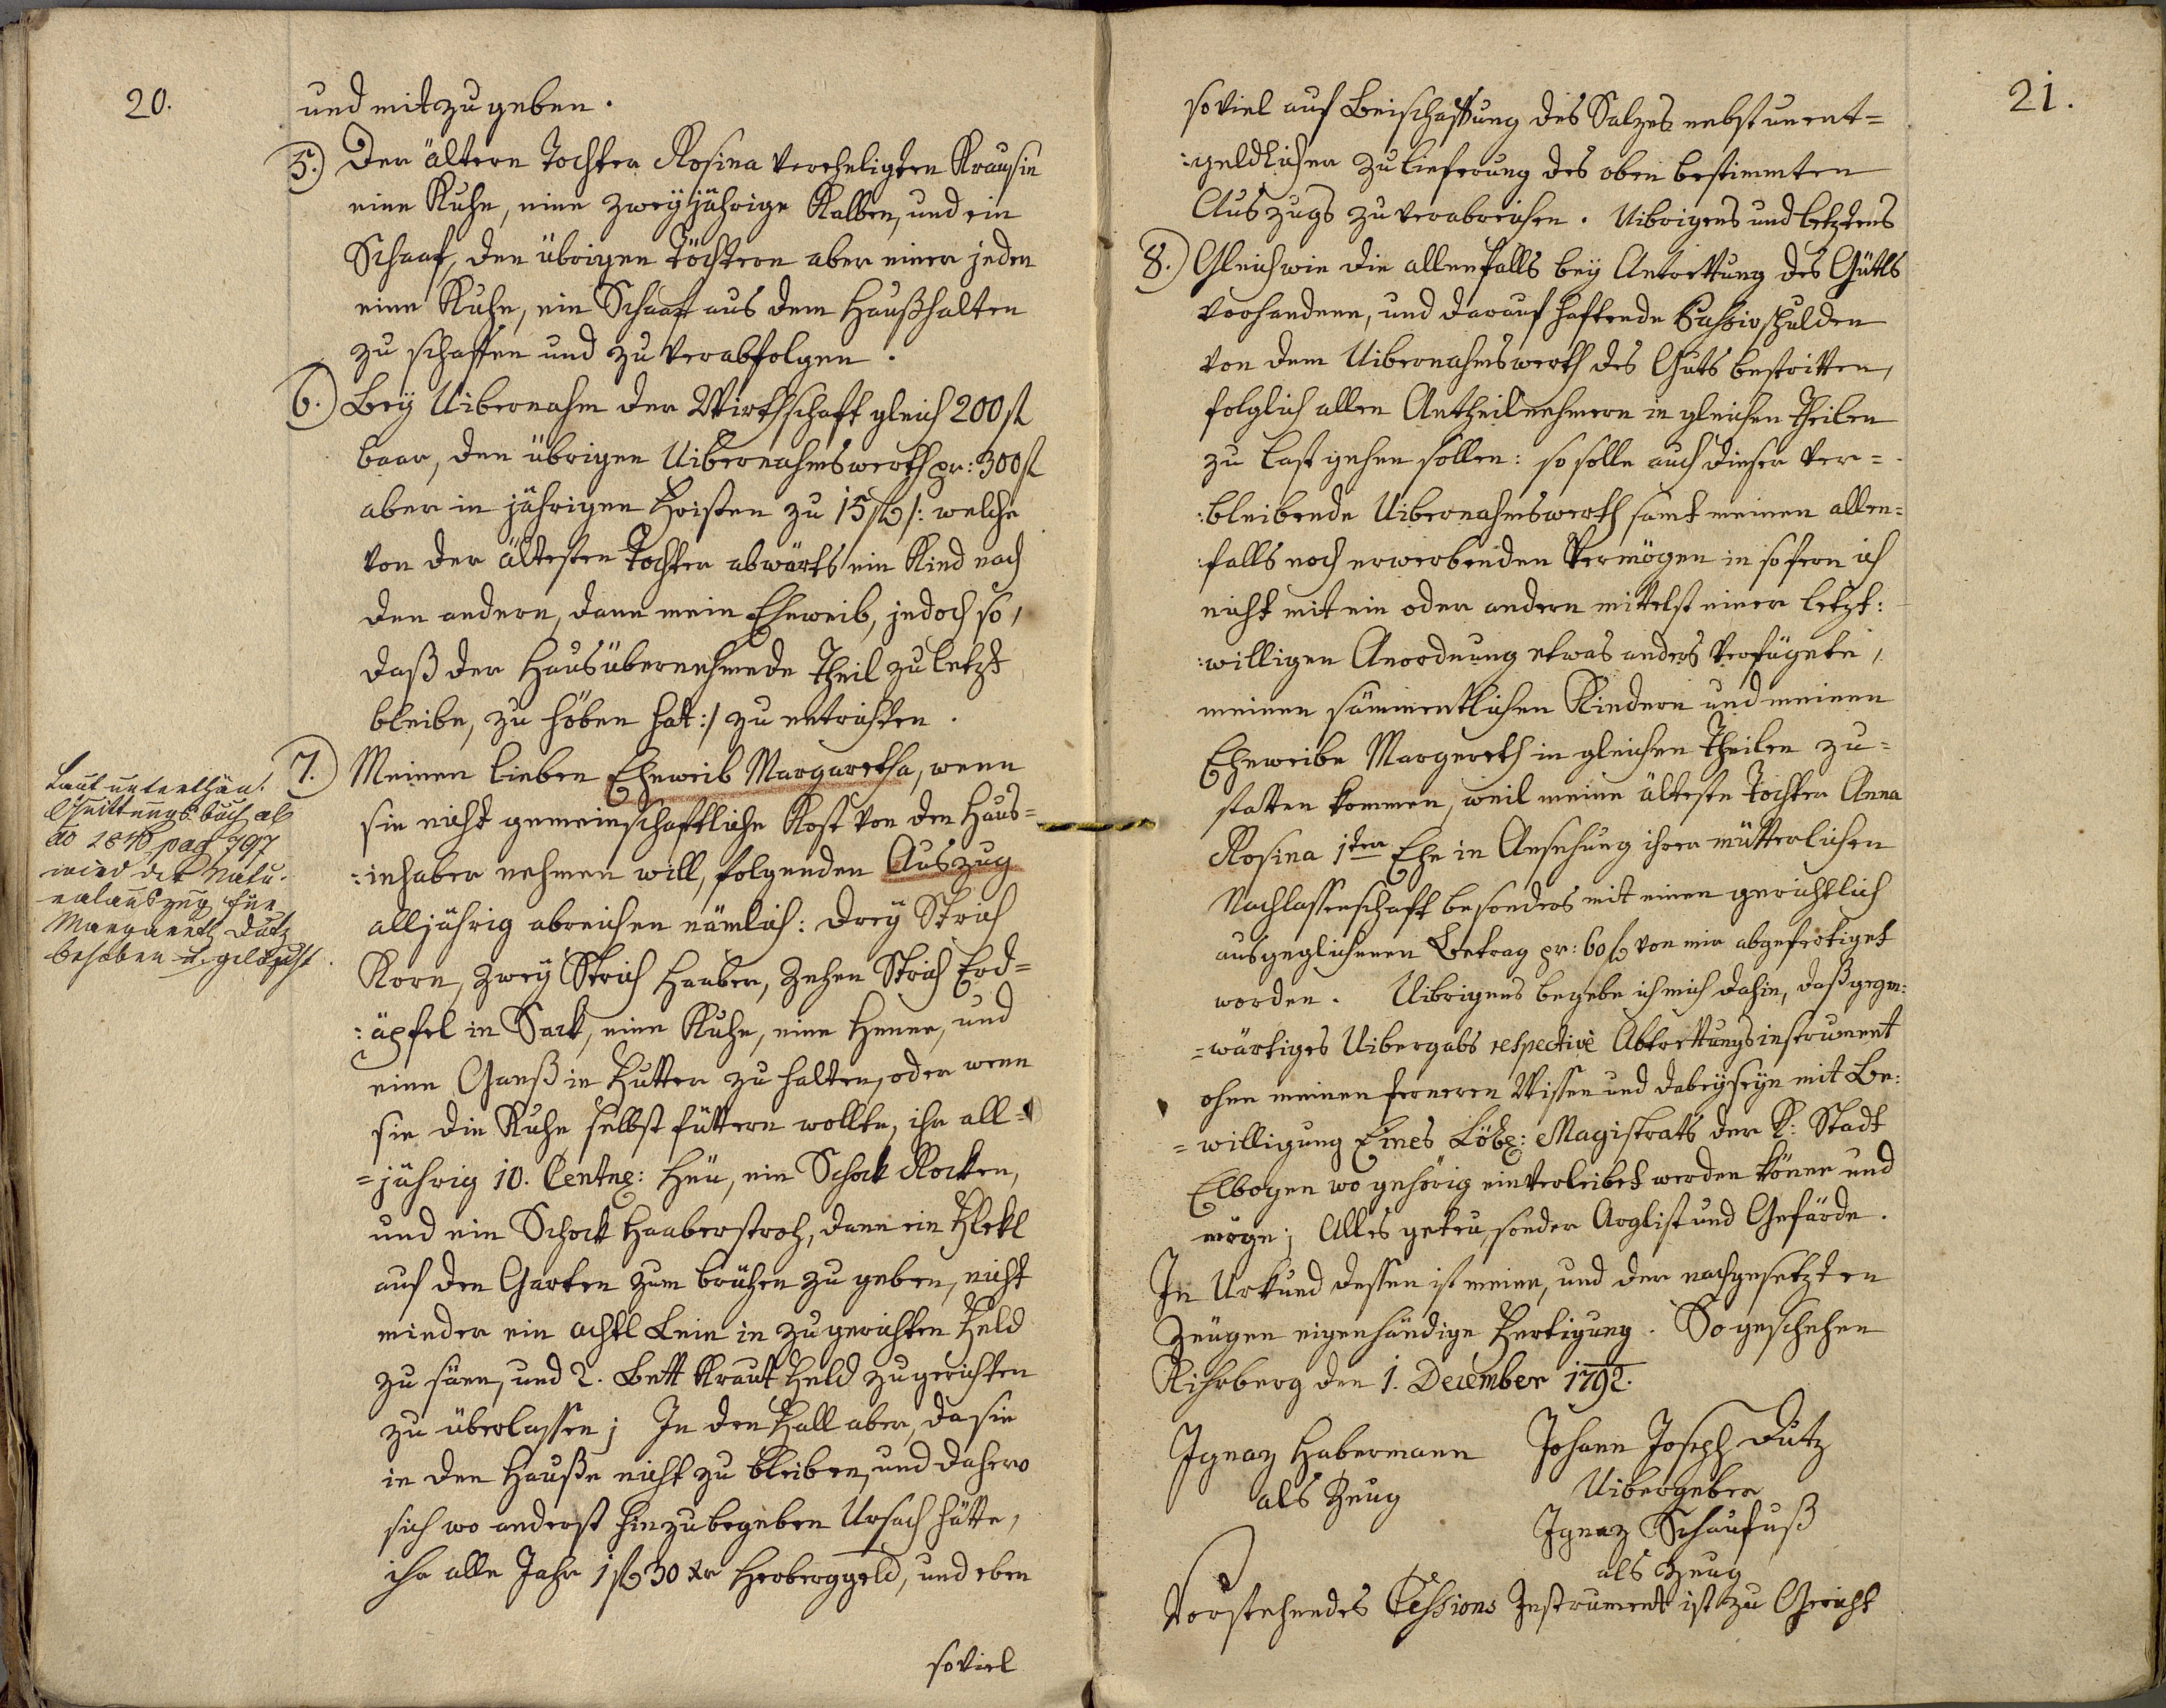 20.
und mitzugeben.
5.) Der ältern Tochter Rosina verehligten Krausin
eine Kuhe, eine zweyjährige Kalben, und ein
Schaaf, den übrigen Töchtern aber einer jeden
eine Kuhe, ein Schaaf aus dem Haußhalten
zu schaffen und zu verabfolgen.
6.) Bey Uibernahm der Wirthschaft gleich 200 fl
baar, den übrigen Uibernahmswerth pr: 300 fl
aber in jährigen Fristen zu 15 fl /: welche
von der ältesten Tochter abwärts ein Kind nach
den andern, dann mein Eheweib, jedoch so,
daß der Hausübernehmede Theil zu letzt
bleibe, zu höben hat :/ zu entrichten.
7.) Meinen lieben Eheweib Margaretha, wenn
sie nicht gemeinschaftliche Kost von den Haus=
:inhaber nehmen will, folgenden Auszug
alljährig abreichen nämlich: drey Strich
Korn, zwey Strich Haaber, zehen Strich Erd=
:äpfel in Sack, eine Kuhe, eine Henne, und
eine Ganß in Futter zu halten, oder wenn
sie die Kuhe selbst füttern wollte, ihr all=
=jährig 10. Centner: Heu, ein Schock Rocken,
und ein Schock Haaberstroh, dann ein Flekl
auf den Garten zum brühen zu geben, nicht
minder ein achtl Lein in zugerichten Feld
zu säen, und 2. Bett Kraut Feld zugerichten
zu überlassen; In den Fall aber, da sie
in den Hauße nicht zu bleiben, und dahero
sich wo anderst hinzubegeben Ursach hätte,
ihr alle Jahr 1 fl 30 xr Herberggeld, und eben
soviel
Laut unterthän.
Quittungsbuch
ao pag 797
wird der Natu-
ralauszug für
Margareth Dutz
behoben u. gelöscht.
21.
soviel auf Beischaffung des Salzes nebst unent=
:geldlicher Zulieferung des oben bestimmten
Auszugs zu verabreichen. Uibrigens und letztens
8.) Gleichwie die allenfalls bey Antrettung des Gütls
vorhandene, und darauf haftende Passivschulden
von dem Uibernahmswerth des Guts bestritten,
folglich allen Antheilnehmern in gleichen Theilen
zu last gehen sollen: so solle auch dieser ver=
:bleibende Uibernahmswerth samt meinen allen=
:falls noch erwerbenden Vermögen in sofern ich
nicht mit ein oder andern mittelst einer letzt:
:willigen Anordnung etwas anders verfügete,
meinen sämmentlichen Kindern und meinen
Eheweibe Margereth in gleichen Theilen zu=
statten kommen, weil meine älteste Tochter Anna
Rosina 1ter Ehe in Ansehung ihrer mütterlichen
Nachlassenschaft besonders mit einen gerichtlich
ausgeglichenen Betrag pr: 60 fl von mir abgefertiget
worden. Uibrigens begebe ich mich dahin, daß gegen:
=wärtiges Uibergabs respective Abtrettungsinstrument
ohne meinen ferneren Wissen und dabeyseyn mit Be:
=willigung Eines Löbl: Magistrats der K: Stadt
Elbogen wo gehörig einverleibet werden könne und
möge; Alles getreu, sonder Arglist und Gefärde.
In Urkund dessen ist meine, und der nachgesetzten
Zeugen eigenhändige Fertigung. So geschehen
den 1. December 1792.
Ignaz Habermann Johann Joseph Dutz
als Zeug Uibergeber
Ignaz Schaufuß
als Zeug
Vorstehendes Cessions Instrument ist zu Gericht